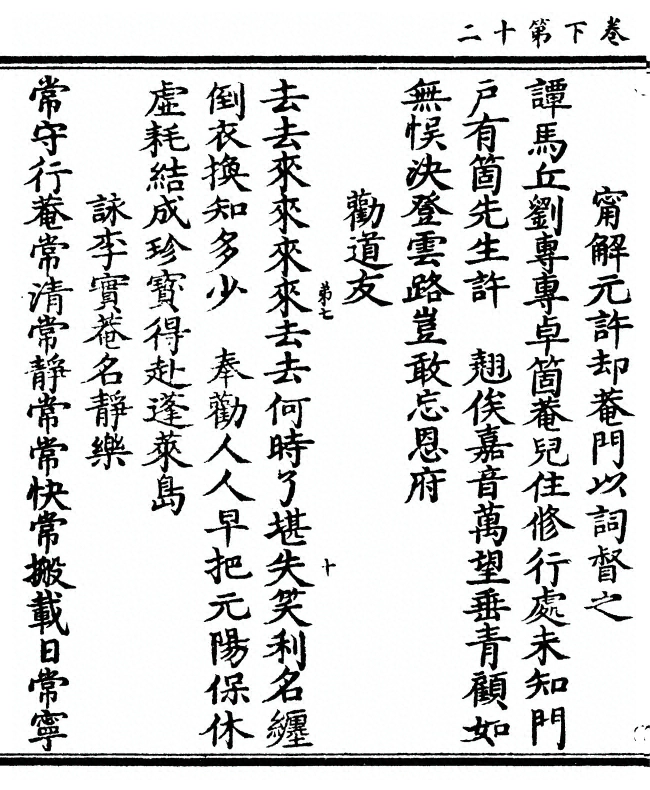 卷下第十二
甯解元許却菴門以詞督之
譚馬丘劉專專卓箇菴兒住修行處未知門
戶有箇先生許　翹俟嘉音萬望垂青顧如
無悞決登雲路豈敢忘恩府
勸道友
去去來來來來去去何時了堪失笑利名纒
第七
十
倒衣換知多少　奉勸人人早把元陽保休
虛耗結成珍寳得赴蓬萊島
詠李實菴名靜樂
常守行菴常清常靜常常快常搬載日常寧